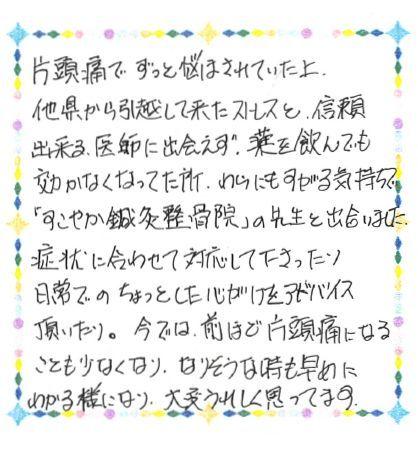 片頭痛でずっと悩まされていた上、
他県から引越して来たストレスと、信頼
出来る医師に出会えず、薬を飲んでも
効かなくなってた所、わらにもすがる気持ちで
「すこやか鍼灸整骨院」の先生と出合いました。
症状に合わせて対応して下さったり
日常でのちょっとした心がけをアドバイス
頂いたり。今では、前ほど片頭痛になる
ことも少なくなり、なりそうな時も早めに
わかる様になり、大変うれしく思ってます。